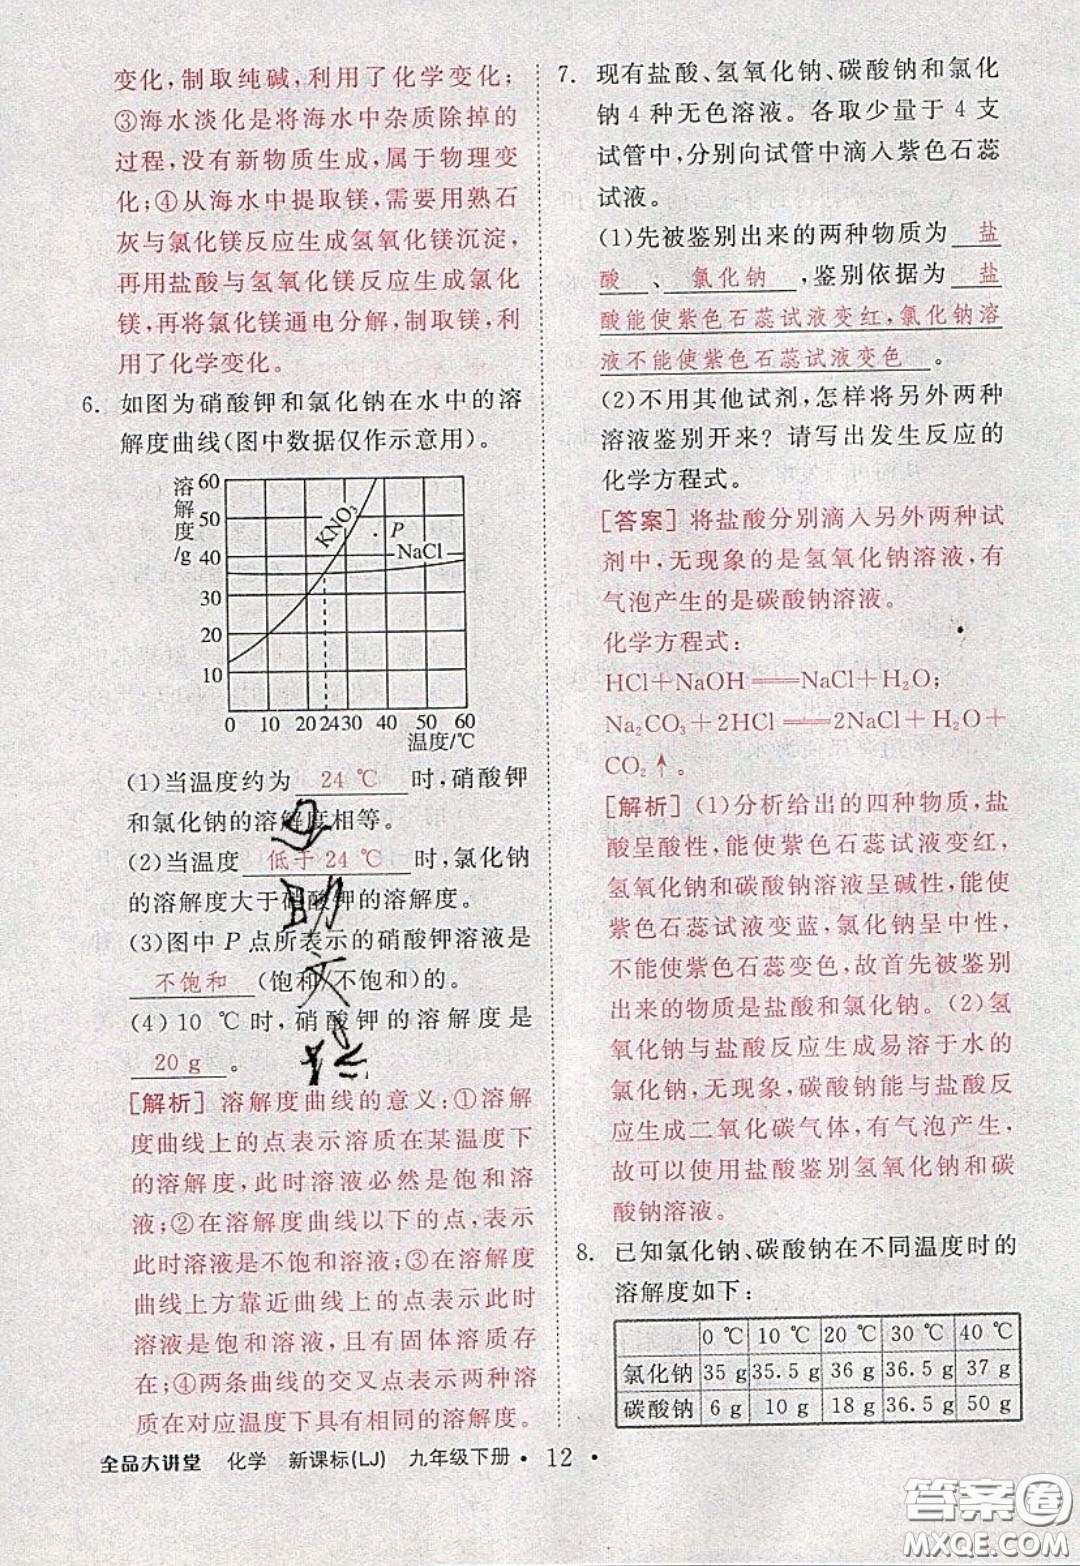 变化,制取纯碱,利用了化学变化;
③海水淡化是将海水中杂质除掉的
过程,没有新物质生成,属于物理变
化;④从海水中提取镁,需要用熟石
灰与氯化镁反应生成氢氧化镁沉淀,
再用盐酸与氢氧化镁反应生成氯化
镁,再将氯化镁通电分解,制取镁,利
用了化学变化。
6. 如图为硝酸钾和氯化钠在水中的溶
解度曲线(图中数据仅作示意用)。
溶解度/g
60
50
40
30
20
10
KNO₃
P
NaCl
0 10 20 24 30 40 50 60
温度/℃
(1)当温度约为 24 ℃ 时,硝酸钾
和氯化钠的溶解度相等。
(2)当温度 低于 24 ℃ 时,氯化钠
的溶解度大于硝酸钾的溶解度。
(3)图中 P 点所表示的硝酸钾溶液是
不饱和 (饱和/不饱和)的。
(4) 10 ℃时,硝酸钾的溶解度是
20 g 。
[解析] 溶解度曲线的意义:①溶解
度曲线上的点表示溶质在某温度下
的溶解度,此时溶液必然是饱和溶
液;②在溶解度曲线以下的点,表示
此时溶液是不饱和溶液;③在溶解度
曲线上方靠近曲线的点表示此时的
溶液是饱和溶液,且有固体溶质存
在;④两条曲线的交叉点表示两种溶
质在对应温度下具有相同的溶解度。
7. 现有盐酸、氢氧化钠、碳酸钠和氯化
钠 4 种无色溶液。各取少量于 4 支
试管中,分别向试管中滴入紫色石蕊
试液。
(1)先被鉴别出来的两种物质为 盐
酸 、 氯化钠 ,鉴别依据为 盐
酸能使紫色石蕊试液变红,氯化钠溶
液不能使紫色石蕊试液变色 。
(2)不用其他试剂,怎样将另外两种
溶液鉴别开来?请写出发生反应的
化学方程式。
[答案] 将盐酸分别滴入另外两种试
剂中,无现象的是氢氧化钠溶液,有
气泡产生的是碳酸钠溶液。
化学方程式:
HCl+NaOH══NaCl+H₂O;
Na₂CO₃+2HCl══2NaCl+H₂O+
CO₂↑。
[解析] (1)分析给出的四种物质,盐
酸呈酸性,能使紫色石蕊试液变红,
氢氧化钠和碳酸钠溶液呈碱性,能使
紫色石蕊试液变蓝,氯化钠呈中性,
不能使紫色石蕊变色,故首先被鉴别
出来的物质是盐酸和氯化钠。(2)氢
氧化钠与盐酸反应生成易溶于水的
氯化钠,无现象,碳酸钠能与盐酸反
应生成二氧化碳气体,有气泡产生,
故可以使用盐酸鉴别氢氧化钠和碳
酸钠溶液。
8. 已知氯化钠、碳酸钠在不同温度时的
溶解度如下:
0 ℃ 10 ℃ 20 ℃ 30 ℃ 40 ℃
氯化钠 35 g 35.5 g 36 g 36.5 g 37 g
碳酸钠 6 g 10 g 18 g 36.5 g 50 g
全品大讲堂 化学 新课标(LJ) 九年级下册 · 12 ·
答案卷
MXQE.COM